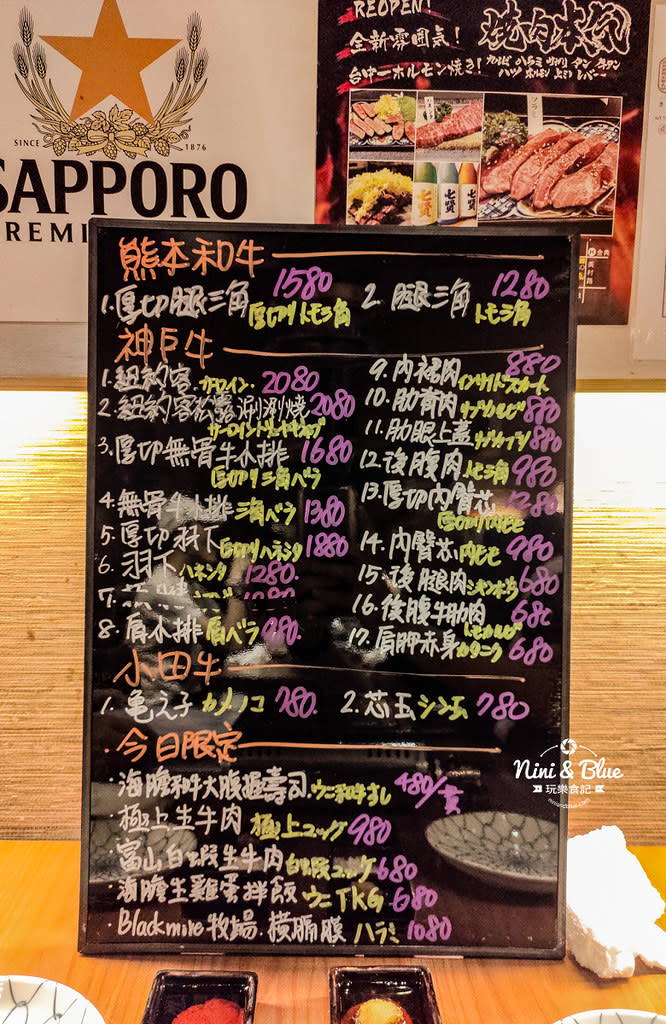 SINCE 1876
SAPPORO
REOPEN!
全新雰囲気!
台中一ホルモン焼き!
焼肉本気
熊本和牛
1.厚切腿三角 厚切りトモ三角 1580
2.腿三角 トモ三角 1280
神戶牛
1.紐約客 サーロイン 2080
2.紐約客松露涮涮燒 2080
3.厚切無骨牛小排 厚切り三角バラ 1680
4.無骨牛小排 三角バラ 1380
5.厚切羽下 厚切りハネシタ 1880
6.羽下 ハネシタ 1280.
8.肩小排 肩バラ
9.內裙肉 インサイドスカート 880
10.肋脊肉 リブカルビ 880
11.肋眼上蓋 880
12.後腹肉 トモ三角 980
13.厚切內臀芯 厚切り内モモ 1280
14.內臀芯 内モモ 980
15.後腿肉 シキンボウ 680
16.後腹牛肋肉 トモカルビ 680
17.肩胛赤身 カタニク 680
小田牛
1.亀え子 カメノコ 780.
2.芯玉 シン玉 780
·今日限定
·海膽和牛大腹握壽司 ウニ和牛すし 480/貫
·極上生牛肉 極上ユッケ 980
·富山白蝦生牛肉 白蝦ユッケ 680
·海膽生雞蛋拌飯 ウニTKG 680
·Blackmore牧場.橫膈膜 ハラミ 1080
Nini & Blue
玩樂食記